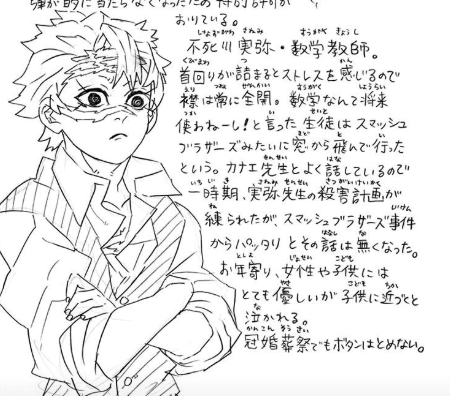 不死川実弥・数学教師。
首回りが詰まるとストレスを感じるので
襟は常に全開。数学なんて将来
使わねーし!と言った生徒はスマッシュ
ブラザーズみたいに窓から飛んで行った
という。カナエ先生とよく話しているので
一時期、実弥先生の殺害計画が
練られたが、スマッシュブラザーズ事件
からパッタリとその話は無くなった。
お年寄り、女性や子供には
とても優しいが子供に近づくと
泣かれる。
冠婚葬祭でもボタンはとめない。